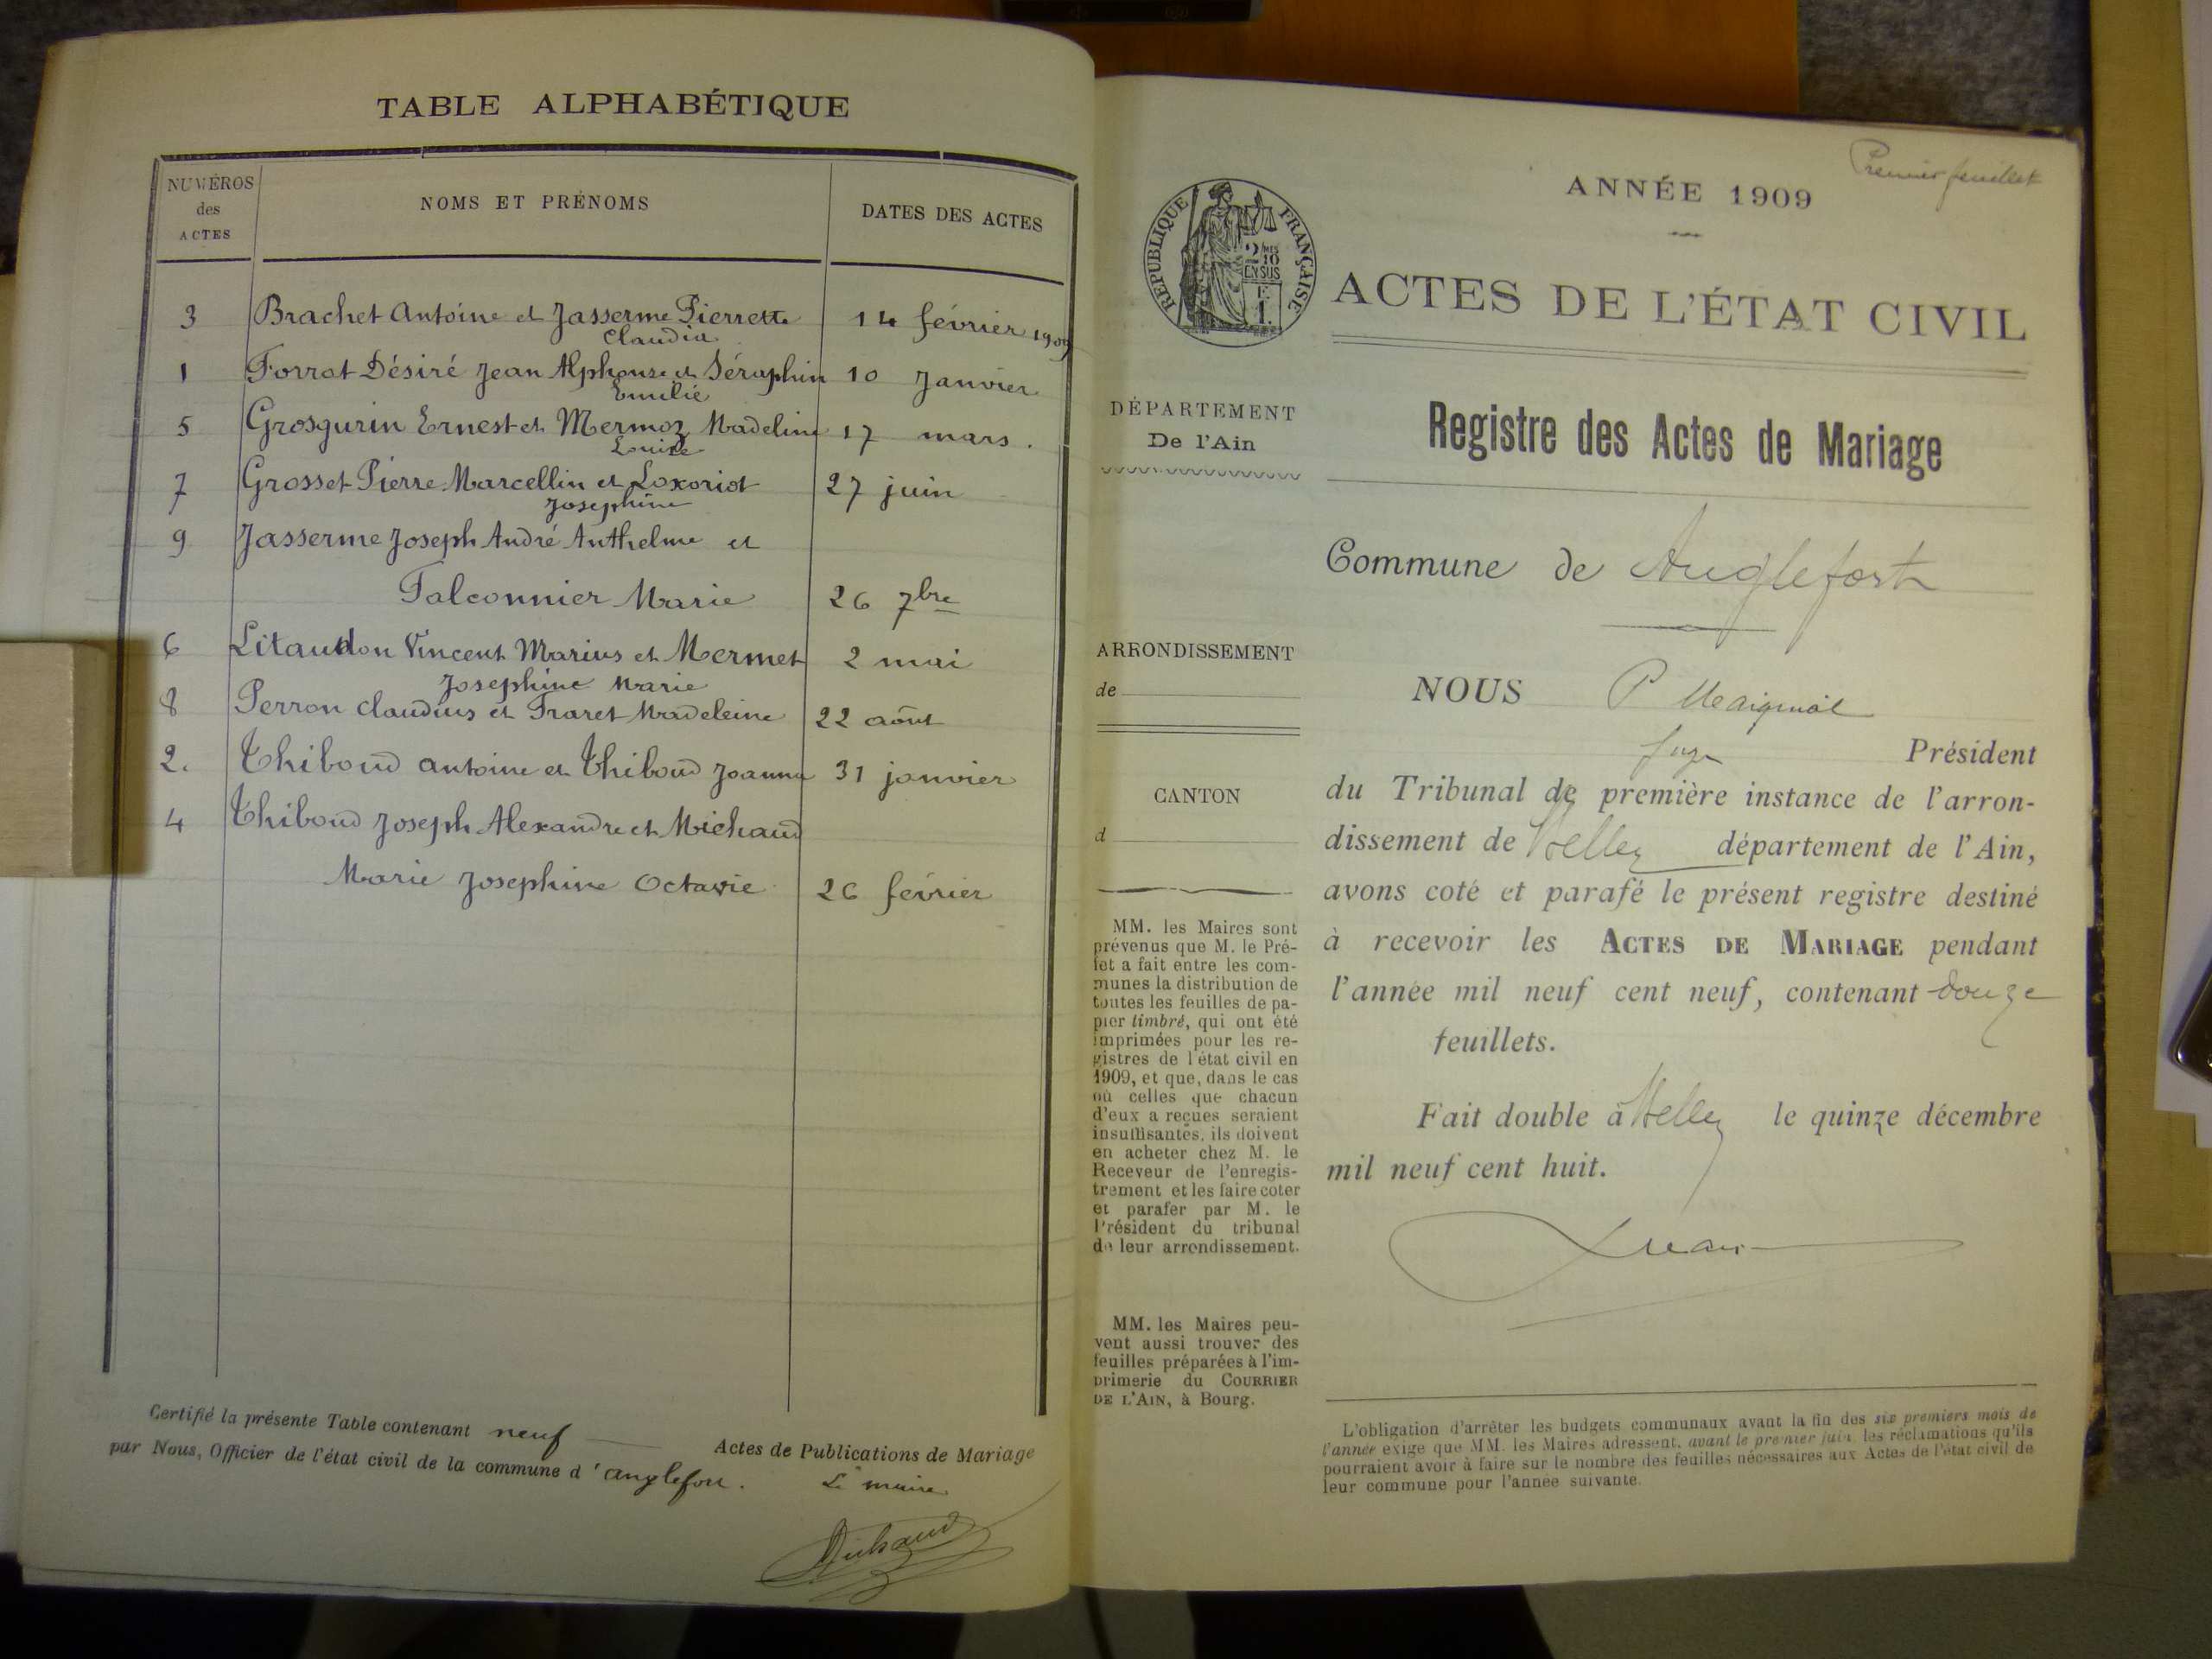 TABLE ALPHABÉTIQUE
NUMÉROS
des
ACTES
NOMS ET PRÉNOMS
DATES DES ACTES
3 Brachet Antoine et Jasserme Pierrette 14 février 1909
Claudia
1 Forrat Désiré Jean Alphonse et Séraphin 10 Janvier
Emilie
5 Grosgurin Ernest et Mermoz Madeline 17 mars.
Louise
7 Grosset Pierre Marcellin et Loxoriot 27 juin
Josephine
9 Jasserme Joseph André Anthelme et
Falconnier Marie 26 7bre
6 Litaudon Vincent Marius et Mermet 2 mai
Josephine Marie
8 Perron Claudius et Praret Madeleine 22 août
2. Thiboud Antoine et Thiboud Joanna 31 janvier
4 Thiboud Joseph Alexandre et Michaud
Marie Josephine Octavie 26 février
Certifié la présente Table contenant neuf Actes de Publications de Mariage
par Nous, Officier de l'état civil de la commune d'anglefort. Le maire
Michaud
Premier feuillet
ANNÉE 1909
RÉPUBLIQUE FRANÇAISE
2/10 MES
EN SUS
F.
1.
ACTES DE L'ÉTAT CIVIL
DÉPARTEMENT
De l'Ain
Registre des Actes de Mariage
Commune de Anglefort
ARRONDISSEMENT
de
CANTON
d
NOUS P
juge Président
du Tribunal de première instance de l'arron-
dissement de Belley département de l'Ain,
avons coté et parafé le présent registre destiné
à recevoir les ACTES DE MARIAGE pendant
l'année mil neuf cent neuf, contenant douze
feuillets.
Fait double à Belley le quinze décembre
mil neuf cent huit.
MM. les Maires sont
prévenus que M. le Pré-
fet a fait entre les com-
munes la distribution de
toutes les feuilles de pa-
pier timbré, qui ont été
imprimées pour les re-
gistres de l'état civil en
1909, et que, dans le cas
où celles que chacun
d'eux a reçues seraient
insuffisantes, ils doivent
en acheter chez M. le
Receveur de l'enregis-
trement et les faire coter
et parafer par M. le
Président du tribunal
de leur arrondissement.
MM. les Maires peu-
vent aussi trouver des
feuilles préparées à l'im-
primerie du COURRIER
DE L'AIN, à Bourg.
L'obligation d'arrêter les budgets communaux avant la fin des six premiers mois de
l'année exige que MM. les Maires adressent, avant le premier juin, les réclamations qu'ils
pourraient avoir à faire sur le nombre des feuilles nécessaires aux Actes de l'état civil de
leur commune pour l'année suivante.